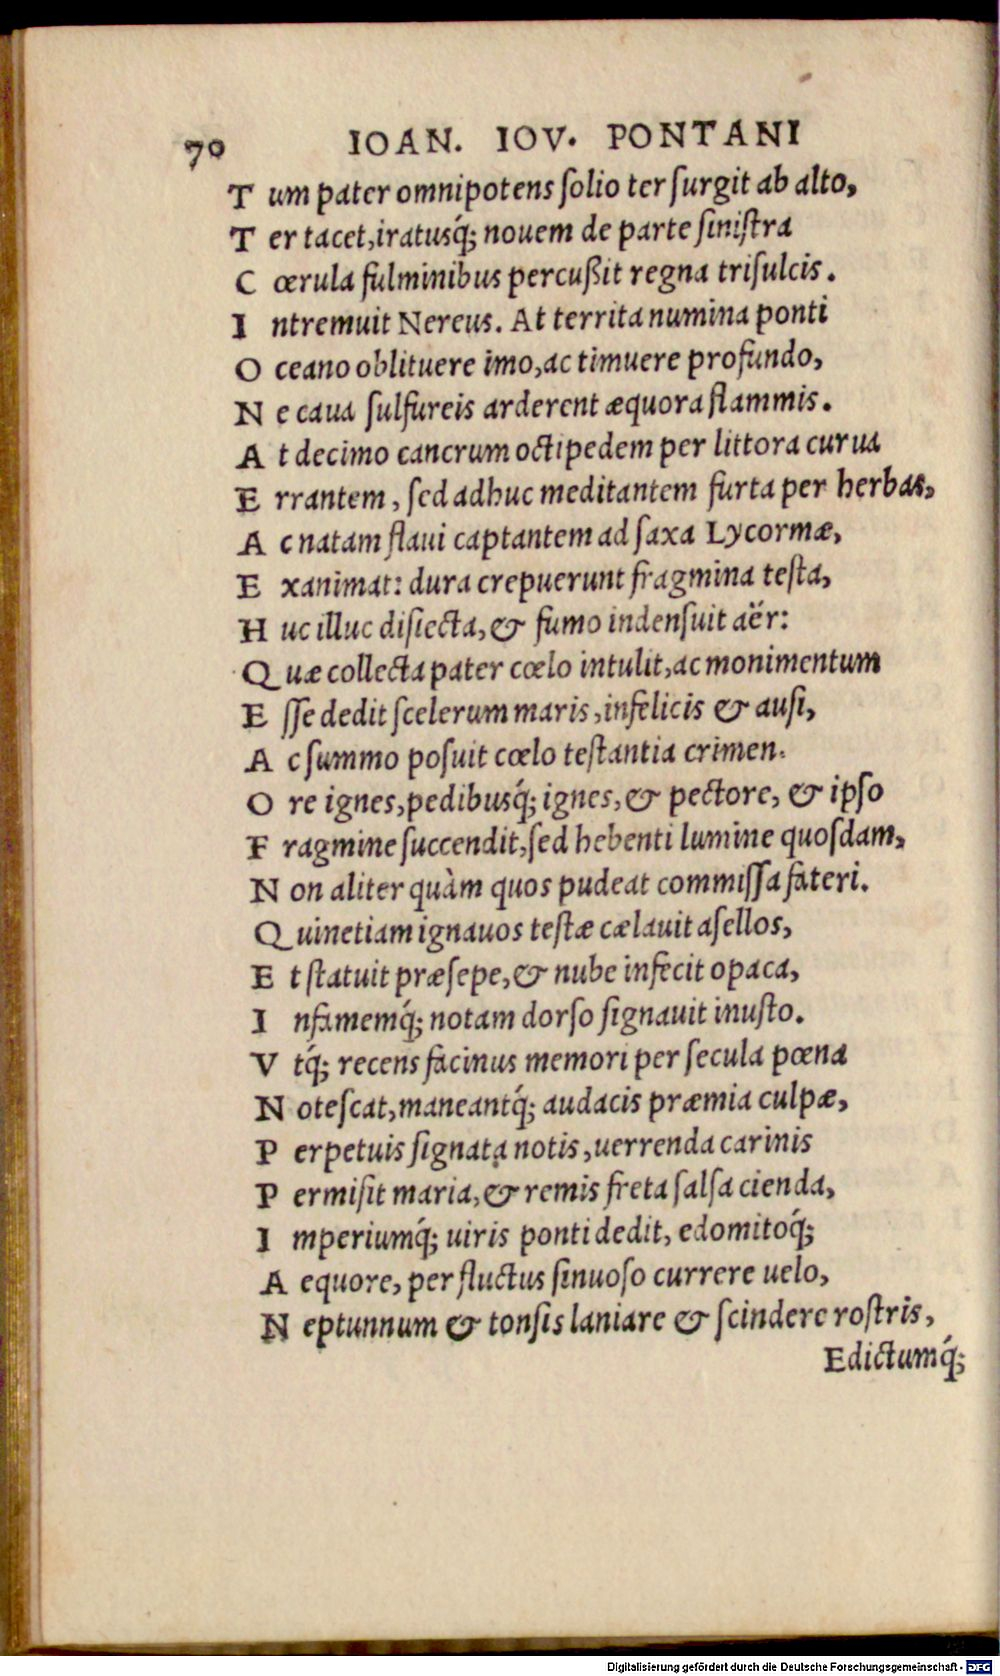 70 IOAN. IOV. PONTANI
T um pater omnipotens ſolio ter ſurgit ab alto,
T er tacet, iratusq́; nouem de parte ſiniſtra
C œrula fulminibus percuſsit regna triſulcis.
I ntremuit Nereus. At territa numina ponti
O ceano oblituere imo, ac timuere profundo,
N e caua ſulfureis arderent æquora flammis.
A t decimo cancrum octipedem per littora curua
E rrantem, ſed adhuc meditantem furta per herbas,
A c natam flaui captantem ad ſaxa Lycormæ,
E xanimat: dura crepuerunt fragmina teſta,
H uc illuc diſiecta, & fumo indenſuit aër:
Q uæ collecta pater cœlo intulit, ac monimentum
E ſſe dedit ſcelerum maris, infelicis & auſi,
A c ſummo poſuit cœlo teſtantia crimen.
O re ignes, pedibusq́; ignes, & pectore, & ipſo
F ragmine ſuccendit, ſed hebenti lumine quoſdam,
N on aliter quàm quos pudeat commiſſa fateri.
Q uinetiam ignauos teſtæ cælauit aſellos,
E t ſtatuit præſepe, & nube infecit opaca,
I nfamemq́; notam dorſo ſignauit inuſto.
V tq́; recens facinus memori per ſecula pœna
N oteſcat, maneantq́; audacis præmia culpæ,
P erpetuis ſignata notis, uerrenda carinis
P ermiſit maria, & remis freta ſalſa cienda,
I mperiumq́; uiris ponti dedit, edomitoq́;
A equore, per fluctus ſinuoſo currere uelo,
N eptunnum & tonſis laniare & ſcindere roſtris,
Edictumq́;
Digitalisierung gefördert durch die Deutsche Forschungsgemeinschaft - DFG